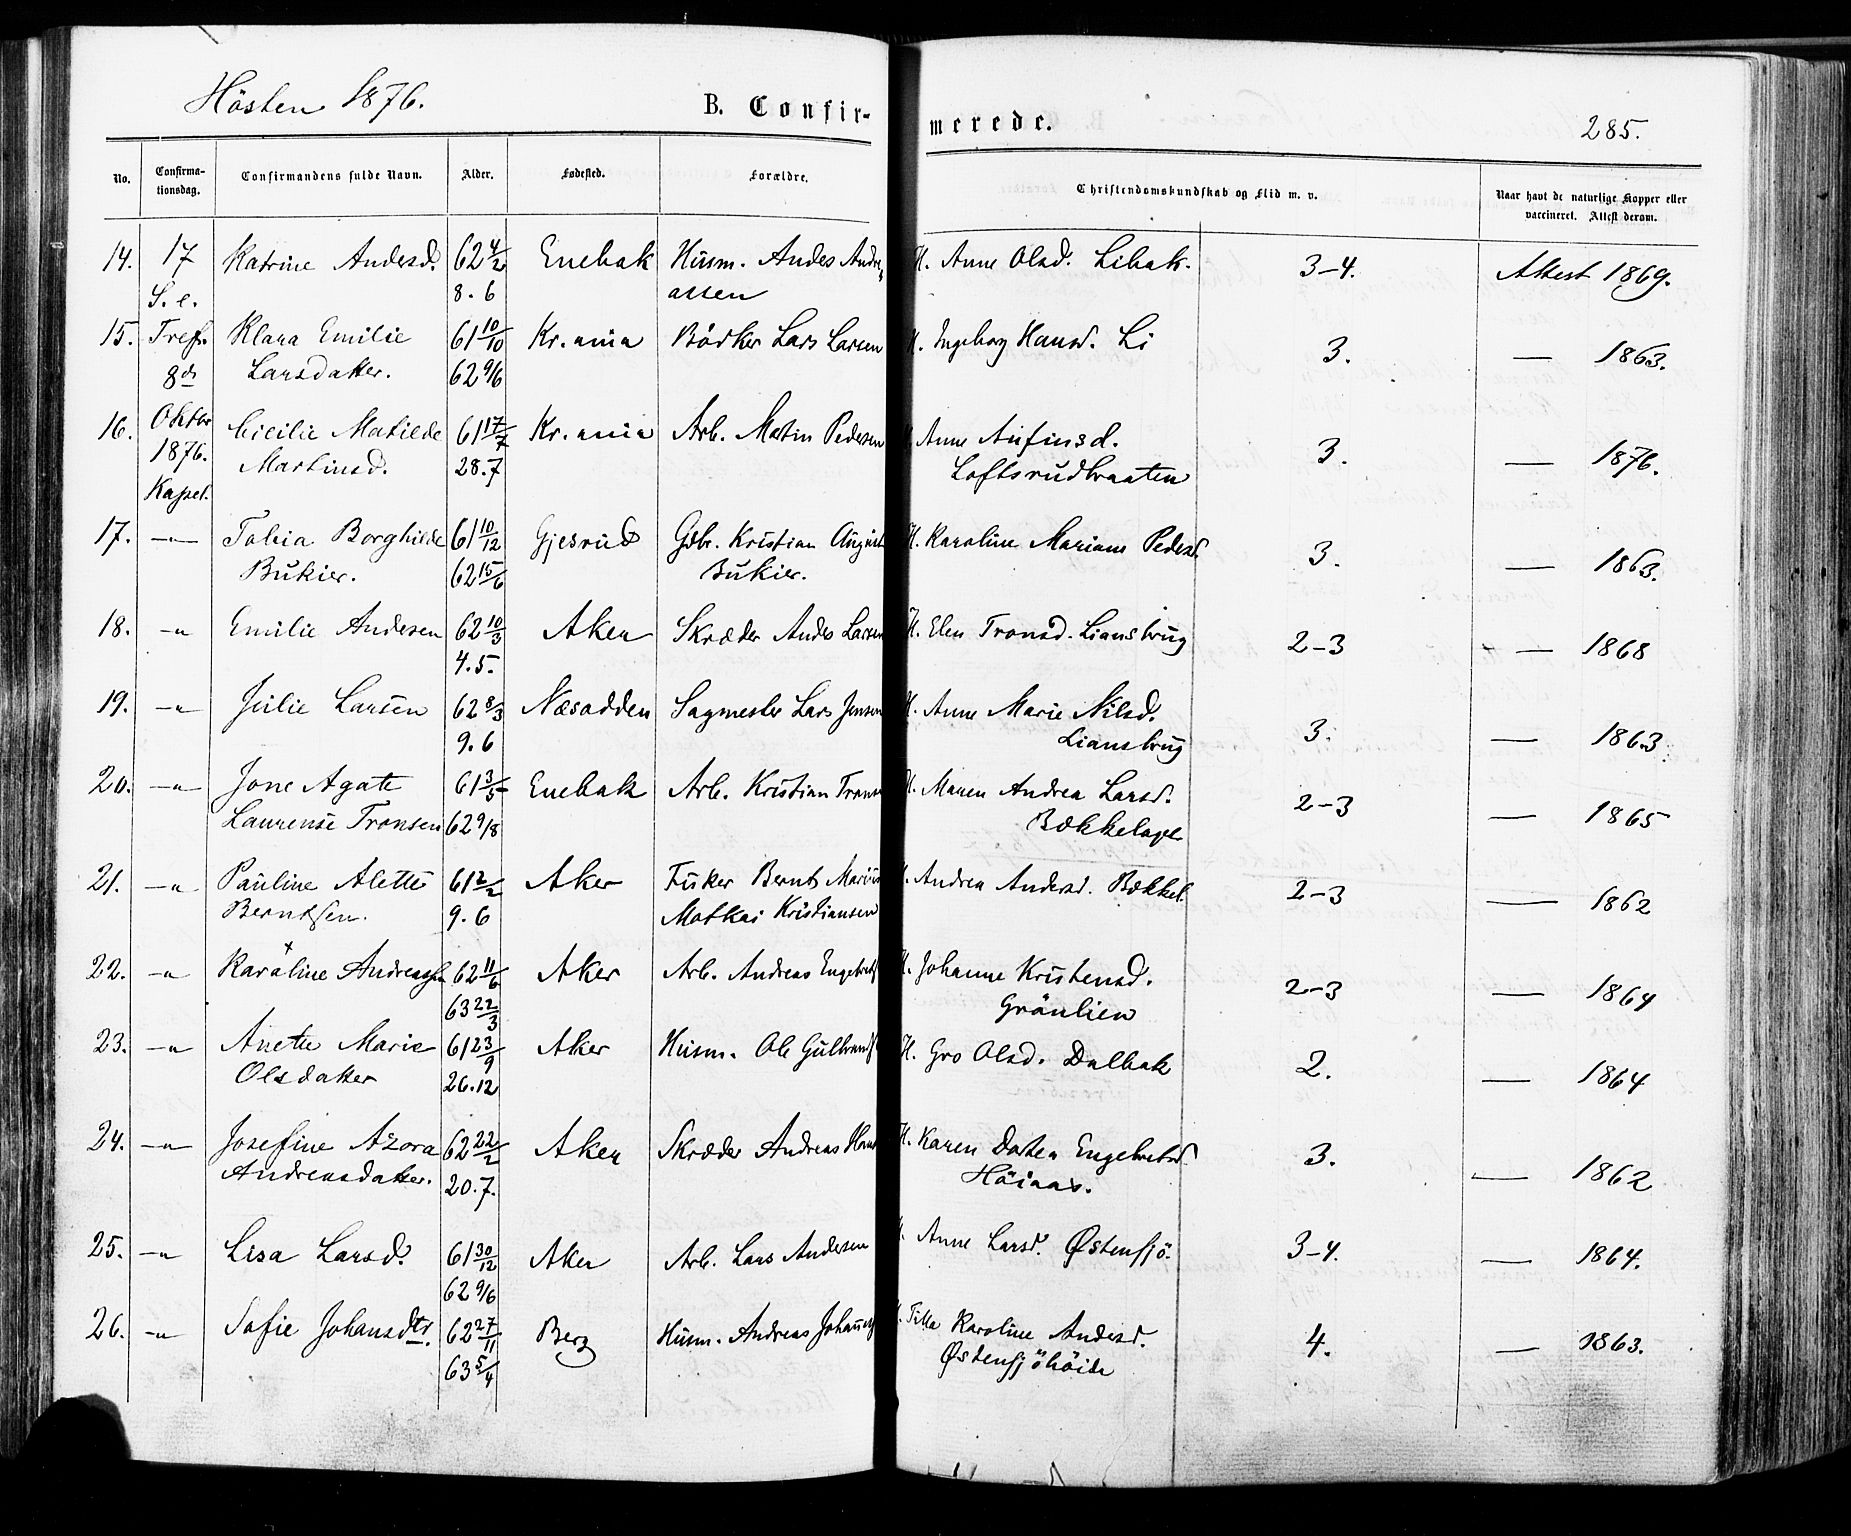 Hösten 1876.
B. Confirmerede.
285.
No. Confirmationsdag. Confirmandens fulde Navn. Alder. Fødested. Forældre. Christendomskundskab og Flid m. v. Naar havt de naturlige Kopper eller vaccineret. Attest derom.
14. 17 Katrine Andersd. 62 4/2 Enebak Husm. Andes Andre- H. Anne Olsd. Libak. 3-4. Attest 1869.
S. e. 8. 6 assen
15. Tref. Klara Emilie 61 10/10 Kr.ania Bödker Lars Larsen H. Ingeborg Hansd. Li 3. — 1863.
8de Larsdatter. 62 9/6
16. Oktbr Cicilie Matilde 61 17/7 Kr.ania Arb. Martin Pedersen Anne Anfinsd. 3. — 1876.
1876. Martinsd. 28.7 Loftsrudbraaten
Kapel.
17. —"— Tobia Borghilde 61 10/12 Gjesrud Gdbr. Kristian August H. Karoline Mariane Pedersd. 3. — 1863.
Bukier. 62 15/6 Bukier.
18. —" Emilie Andersen 62 10/3 Aker Skræder Andes Larsen H. Elen Tronsd. Liansbrug 2-3 — 1868
4.5.
19. —" Julie Larsen 62 8/3 Næsodden Sagmester Lars Jensen H. Anne Marie Nilsd. 3. — 1863
9. 6 Liansbrug
20. —" Jone Agate 61 3/5 Enebak Arb. Kristian Trons H. Maren Andrea Larsd. 2-3 — 1865
Laurense Tronsen 62 9/8 Bækkelaget
21. —" Pauline Alette 61 2/2 Aker Fisker Bernt Marius H. Andrea Andersd. Bækkel. 2-3 — 1862
Berntsen. 9. 6 Kristiansen
22. —" Karoline Andreassen 62 11/6 Aker Arb. Andreas Engebrets H. Johanne Kristensd. 2-3 — 1864
63 22/3 Grönlien
23. —" Anette Marie 61 23/9 Aker Husm. Ole Gulbrands H. Gro Olsd. Dalbak 2. — 1864
Olsdatter 26.12
24. —" Josefine Azora 62 22/2 Aker Skræder Andreas Hans H. Karen Dortea Engebretsd. 3. — 1862
Andreasdatter. 20.7. Höiaas.
25. —" Lisa Larsd. 61 30/12 Aker Arb. Lars Andersen Anne Larsd. Østensjö. 3-4. — 1864.
62 9/6
26. —" Sofie Johansdtr. 62 27/11 Berg Husm. Andreas Johannes Karoline Andersd. 4. — 1863.
63 5/4 Østensjöhöide